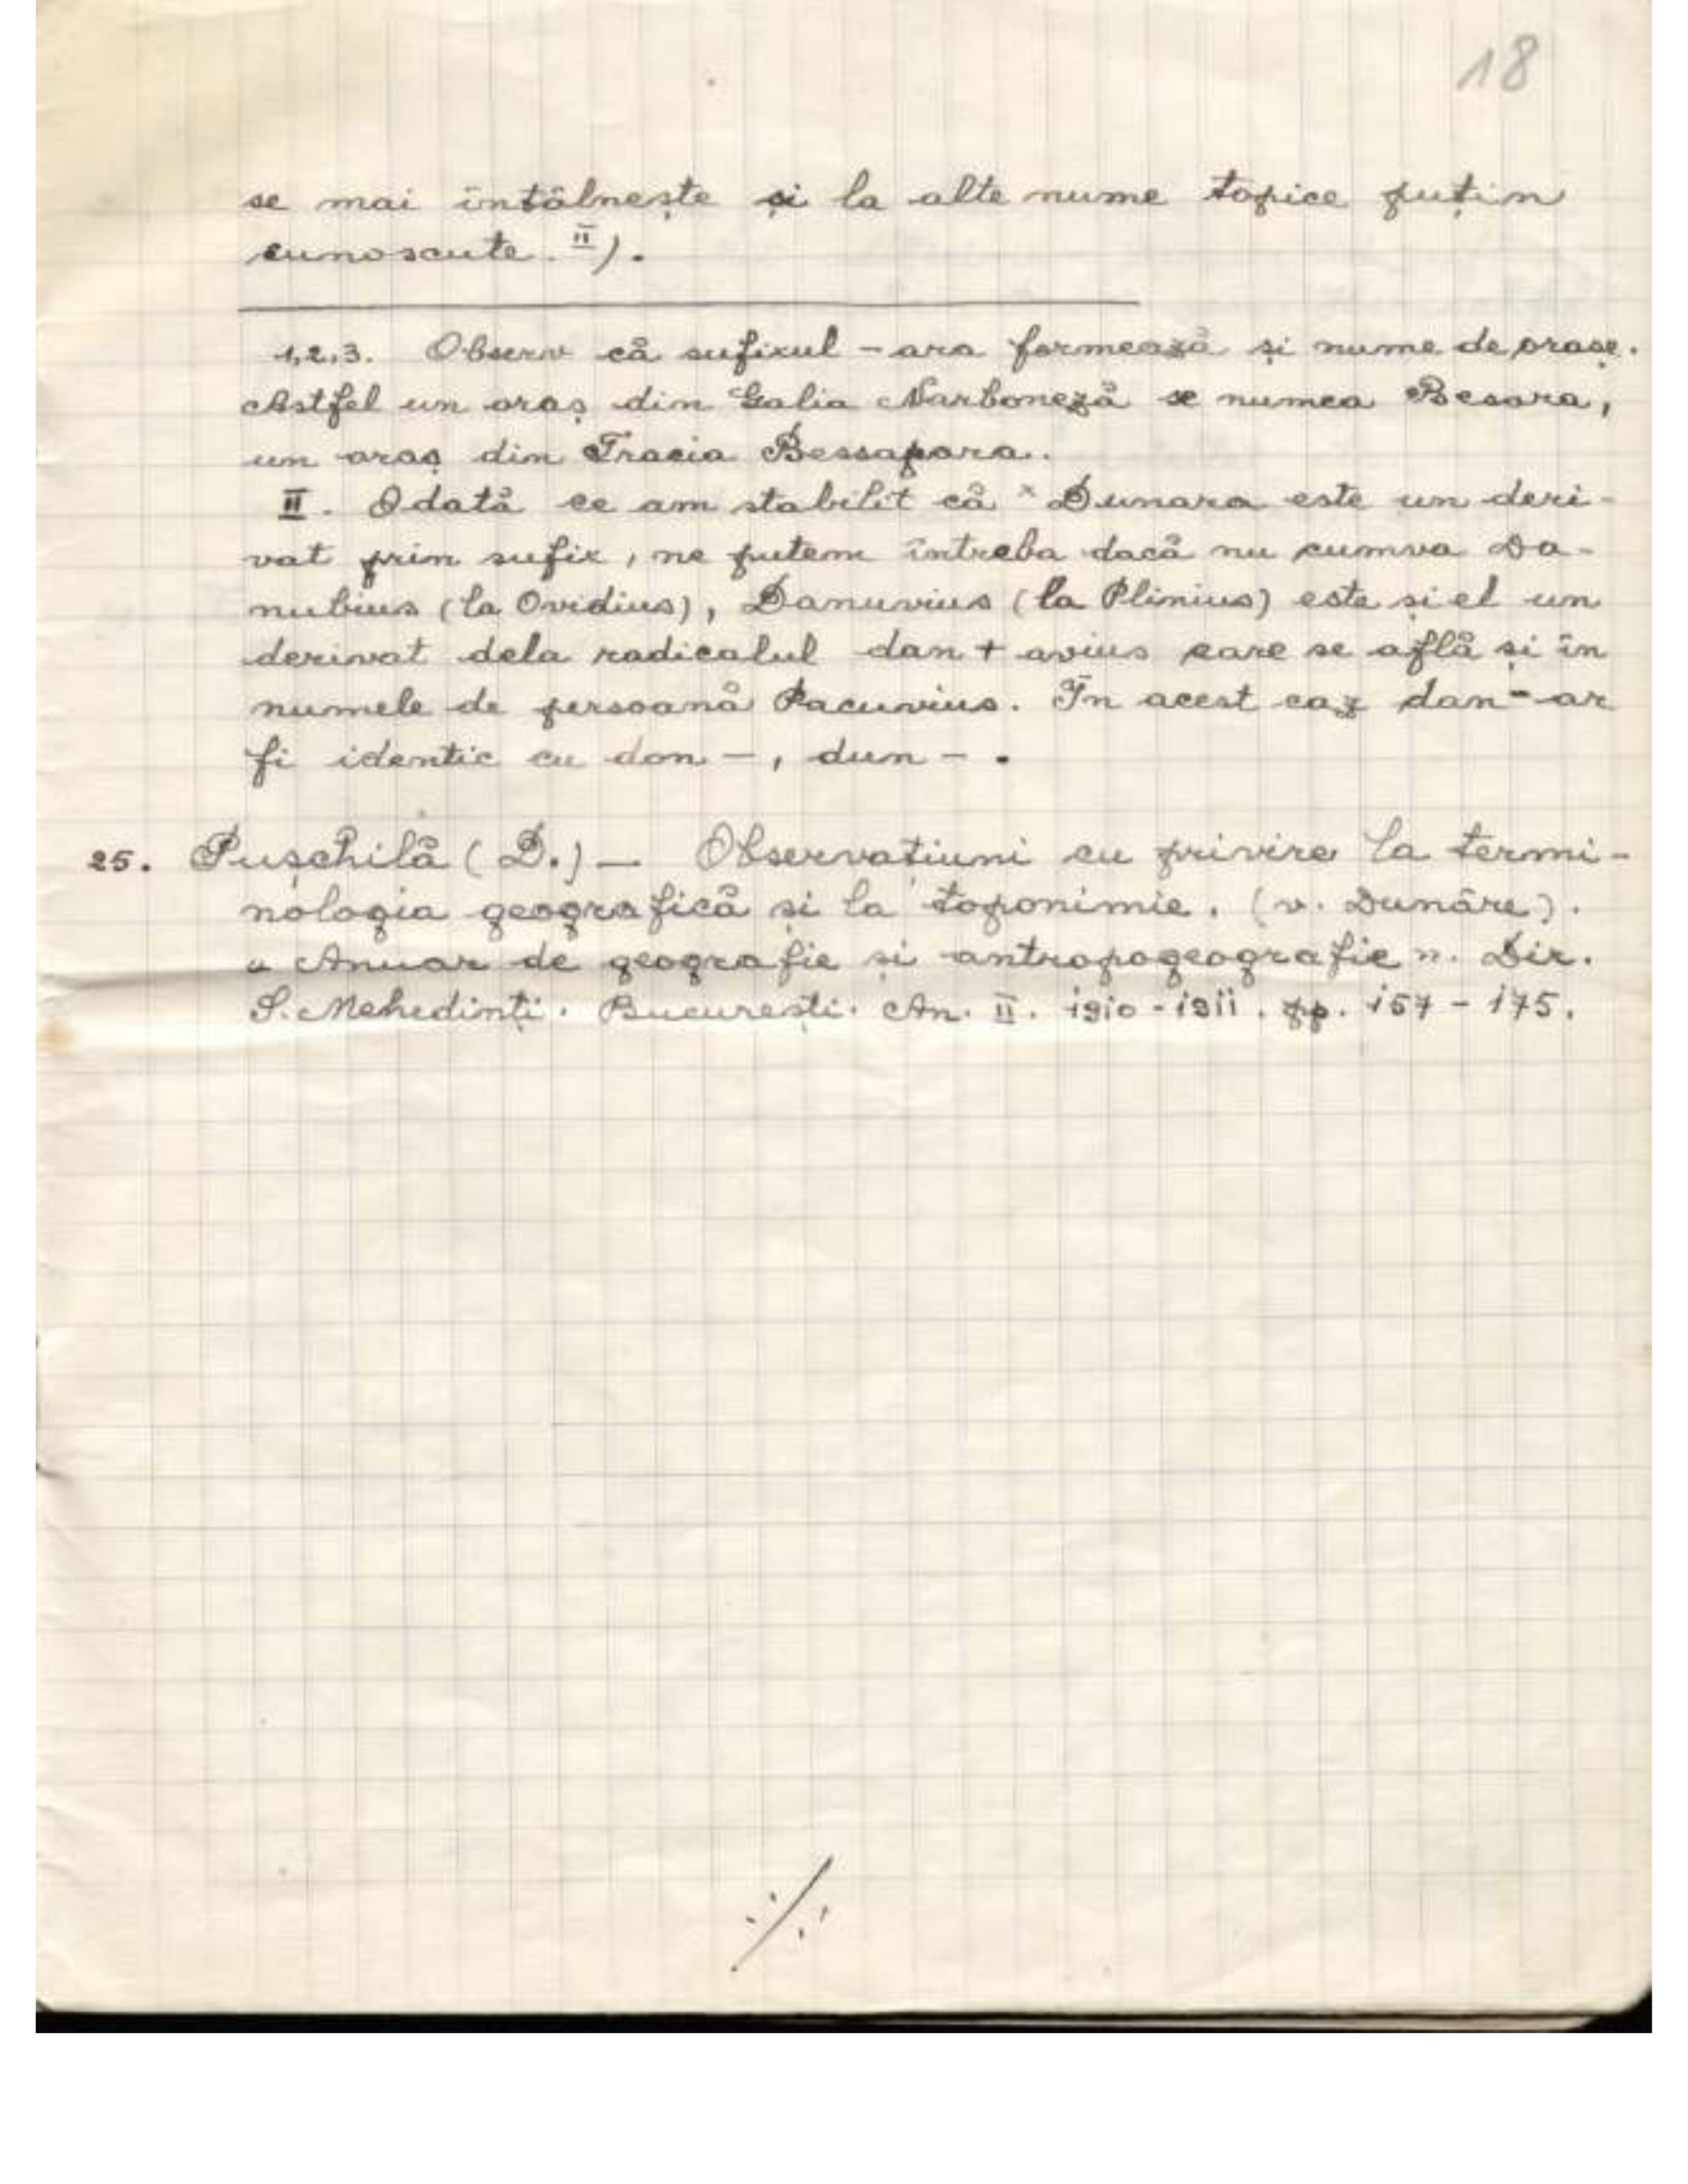 18
se mai întâlnește și la alte nume topice puțin
cunoscute. II).
1,2,3. Observ că sufixul -ara formează și nume de orașe.
Astfel un oraș din Galia Narboneză se numea Besara,
un oraș din Tracia Bessapara.
II. Odată ce am stabilit că ˣ Dunara este un deri-
vat prin sufix, ne putem întreba dacă nu cumva Da-
nubius (la Ovidius), Danuvius (la Plinius) este și el un
derivat dela radicalul dan + avius care se află și în
numele de persoană Pacuvius. În acest caz dan- ar
fi identic cu don -, dun - .
25. Pușchilă (D.) — Observațiuni cu privire la termi-
nologia geografică și la toponimie. (v. Dunăre).
„ Anuar de geografie și antropogeografie ". Dir.
S. Mehedinți. București. An. II. 1910 - 1911. pp. 157 - 175.